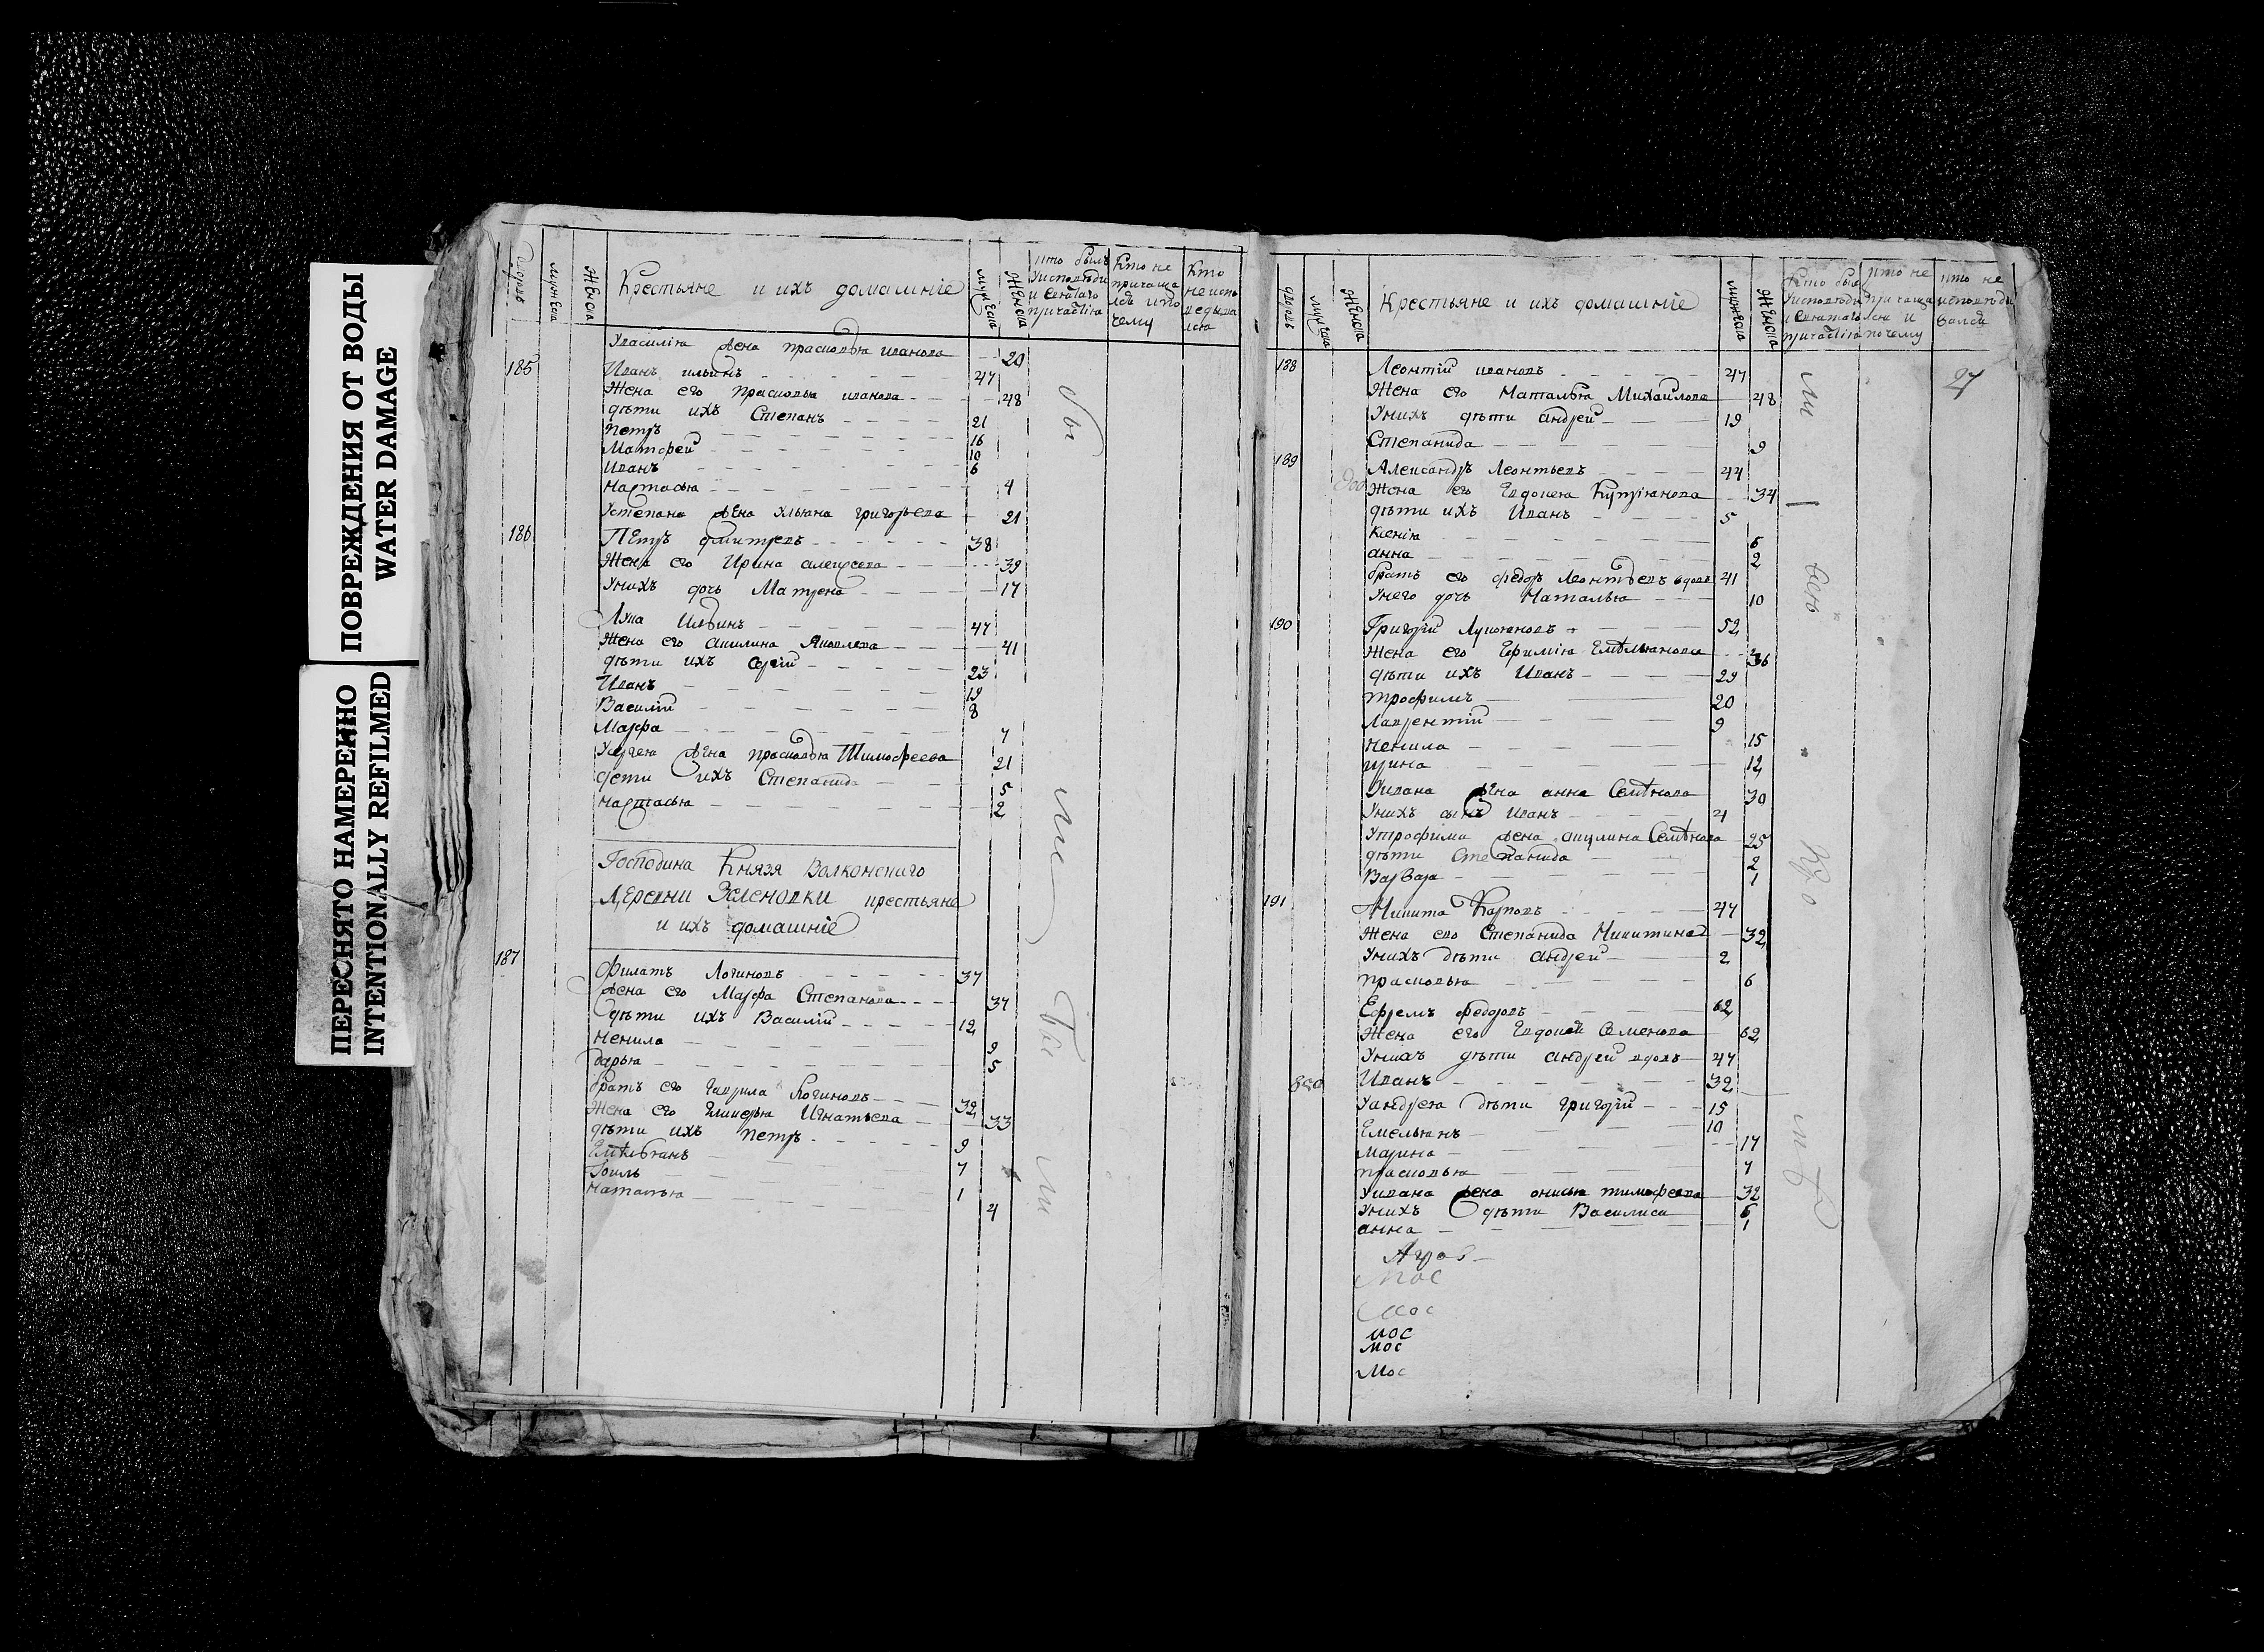 ПОВРЕЖДЕНИЯ ОТ ВОДЫ
WATER DAMAGE
ПЕРЕСНЯТО НАМЕРЕННО
INTENTIONALLY REFILMED
Крестьяне и ихъ домашніе
мужеска
женска
кто былъ
у исповѣди
и святаго
причастія
Кто не
причаща
лся и по
чему
Кто
не испо
ведыва
лся
Увасилія жена прасковья иванова 20
185 Иванъ ильинъ 47
Жена его прасковья иванова 48
дѣти ихъ Степанъ 21
петръ 16
Матфей 10
Иванъ 6
Настасья 4
Устепана жена Ульяна григорьева 21
186 Петръ дмитревъ 38
Жена его Ирина алексеева 39
Унихъ дочь Матрена 17
Лука Ильинъ 47
Жена его акилина Яковлева 41
дѣти ихъ Сергій 23
Иванъ 19
Василій 8
Марфа 7
Усергея жена прасковья Тимофеева 21
дети ихъ Степанида 5
Настасья 2
Господина Князя Волконскаго
Деревни Зеленовки крестьяне
и ихъ домашніе
187 Филатъ Логиновъ 37
жена его Марфа Степанова 37
дѣти ихъ Василій 12
Ненила 9
дарья 5
братъ его Гаврила Логиновъ 32
Жена его Гликерья Игнатьева 33
дѣти ихъ петръ 9
Емѣльянъ 7
1
Наталья 4
бы
ли
ли
Крестьяне и ихъ домашніе
мужеска
женска
Кто был
у исповѣди
и святаго
причастія
кто не
прича ща
лся и
почему
кто не
исповѣди
вался
27
188 Леонтій ивановъ 47
Жена его Наталья Михайлова 48
Унихъ дѣти андрей 19
Степанида 9
189 Александръ Леонтьевъ 44
Жена его Евдокея Купріянова 34
дѣти ихъ Иванъ 5
Ксенія 6
анна 2
братъ его федоръ Леонтьевъ вдовъ 41
Унего дочь Наталья 10
190 Григорій Лукояновъ 52
Жена его Ефимія Емѣльянова 36
дѣти ихъ Иванъ 29
трофимъ 20
Лаврентій 9
Ненила 15
ирина 12
Уивана жена анна Семѣнова 30
Унихъ сынъ Иванъ 4
Утрофима жена акулина Семѣнова 25
дѣти степанида 2
Варвара 1
191 Никита Карповъ 47
Жена ево Степанида Никитина 32
Унихъ дѣти андрей 2
прасковья 6
Ефремъ федоровъ 62
Жена его Евдокея Семенова 62
Унихъ дѣти андрей вдовъ 47
Иванъ 32
850
Уандрея дѣти григорій 15
Емельянъ 10
Марина 17
прасковья 7
Уивана жена онисья тимофеева 32
Унихъ дѣти Василиса 6
анна 1
мос
мос
мос
мос
Мос